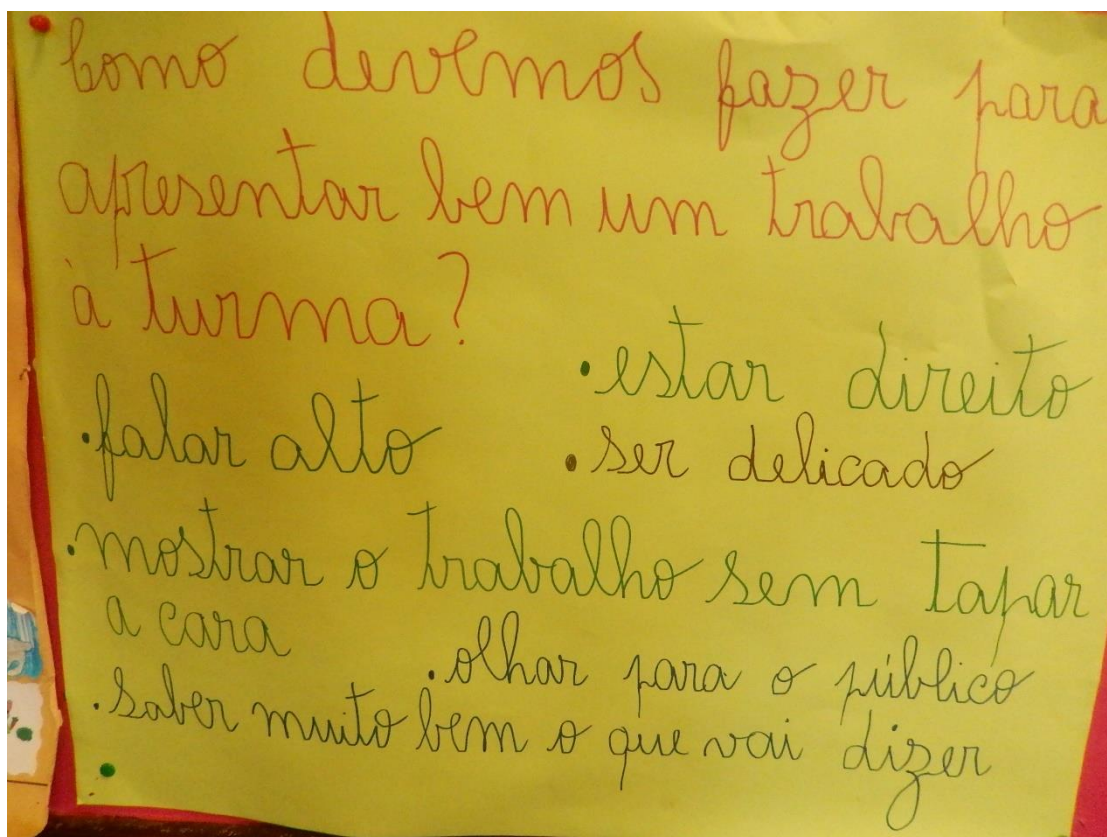 Como devemos fazer para
apresentar bem um trabalho
à turma?
• estar direito
• falar alto
• ser delicado
• mostrar o trabalho sem tapar
a cara
• olhar para o público
• saber muito bem o que vai dizer